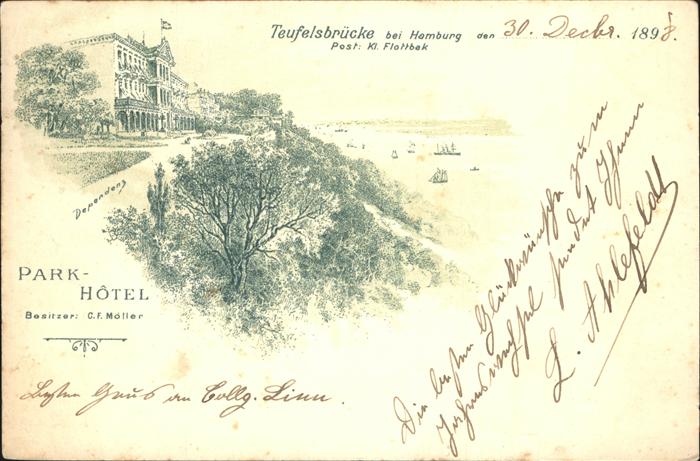 Teufelsbrücke bei Hamburg den 30. Decbr. 1898.
Post: Kl. Flottbek
Dependenz
PARK-
HÔTEL
Besitzer: C.F. Möller
Die besten Glückwünsche zum
Jahreswechsel sendet Ihnen
L. Ahlefeldt
Besten Gruss an Collg. Linn.